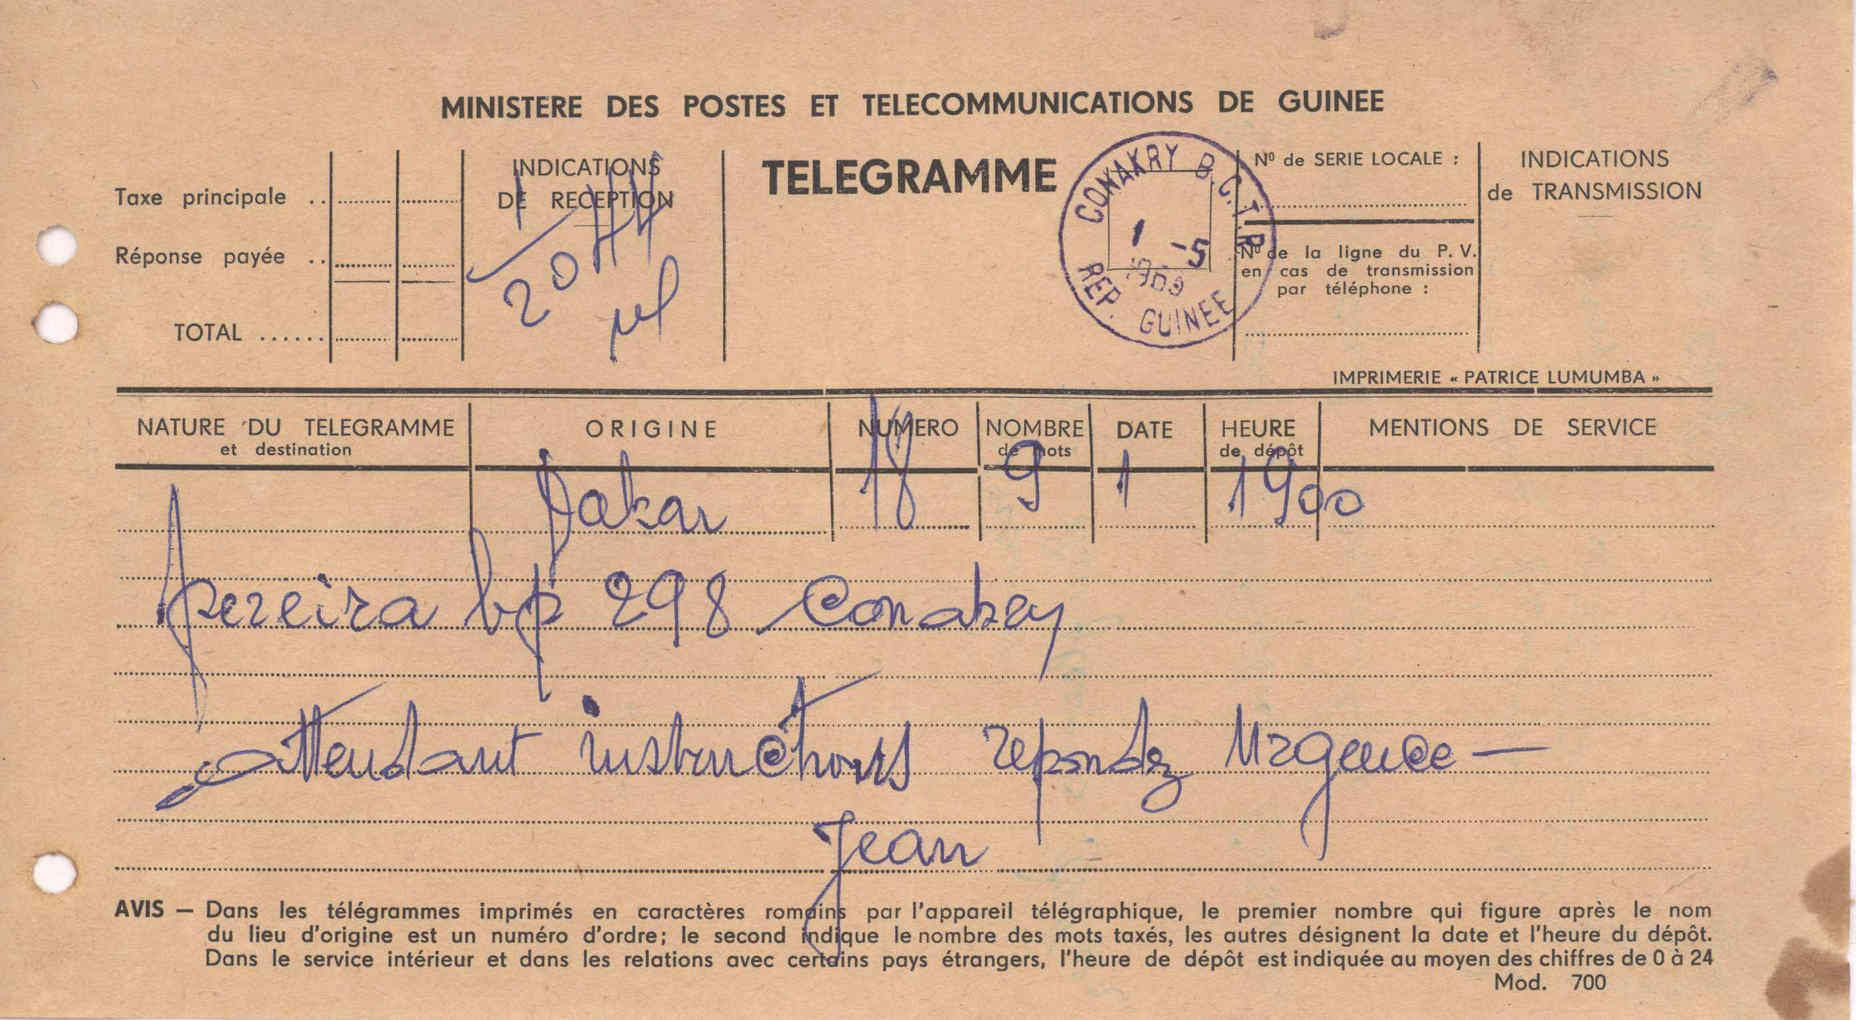 MINISTERE DES POSTES ET TELECOMMUNICATIONS DE GUINEE
Taxe principale ..
Réponse payée ..
TOTAL ......
INDICATIONS
DE RECEPTION
1
20
TELEGRAMME
CONAKRY B.C.T.R.
1 -5
1969
REP. GUINEE
Nº de SERIE LOCALE :
Nº de la ligne du P. V.
en cas de transmission
par téléphone :
INDICATIONS
de TRANSMISSION
IMPRIMERIE « PATRICE LUMUMBA »
NATURE DU TELEGRAMME
et destination
ORIGINE
NUMERO
NOMBRE
de mots
DATE
HEURE
de dépôt
MENTIONS DE SERVICE
Dakar 18 9 1 1900
pereira bp 298 Conakry
attendant instructions repondez Urgence —
Jean
AVIS — Dans les télégrammes imprimés en caractères romains par l'appareil télégraphique, le premier nombre qui figure après le nom
du lieu d'origine est un numéro d'ordre; le second indique le nombre des mots taxés, les autres désignent la date et l'heure du dépôt.
Dans le service intérieur et dans les relations avec certains pays étrangers, l'heure de dépôt est indiquée au moyen des chiffres de 0 à 24
Mod. 700